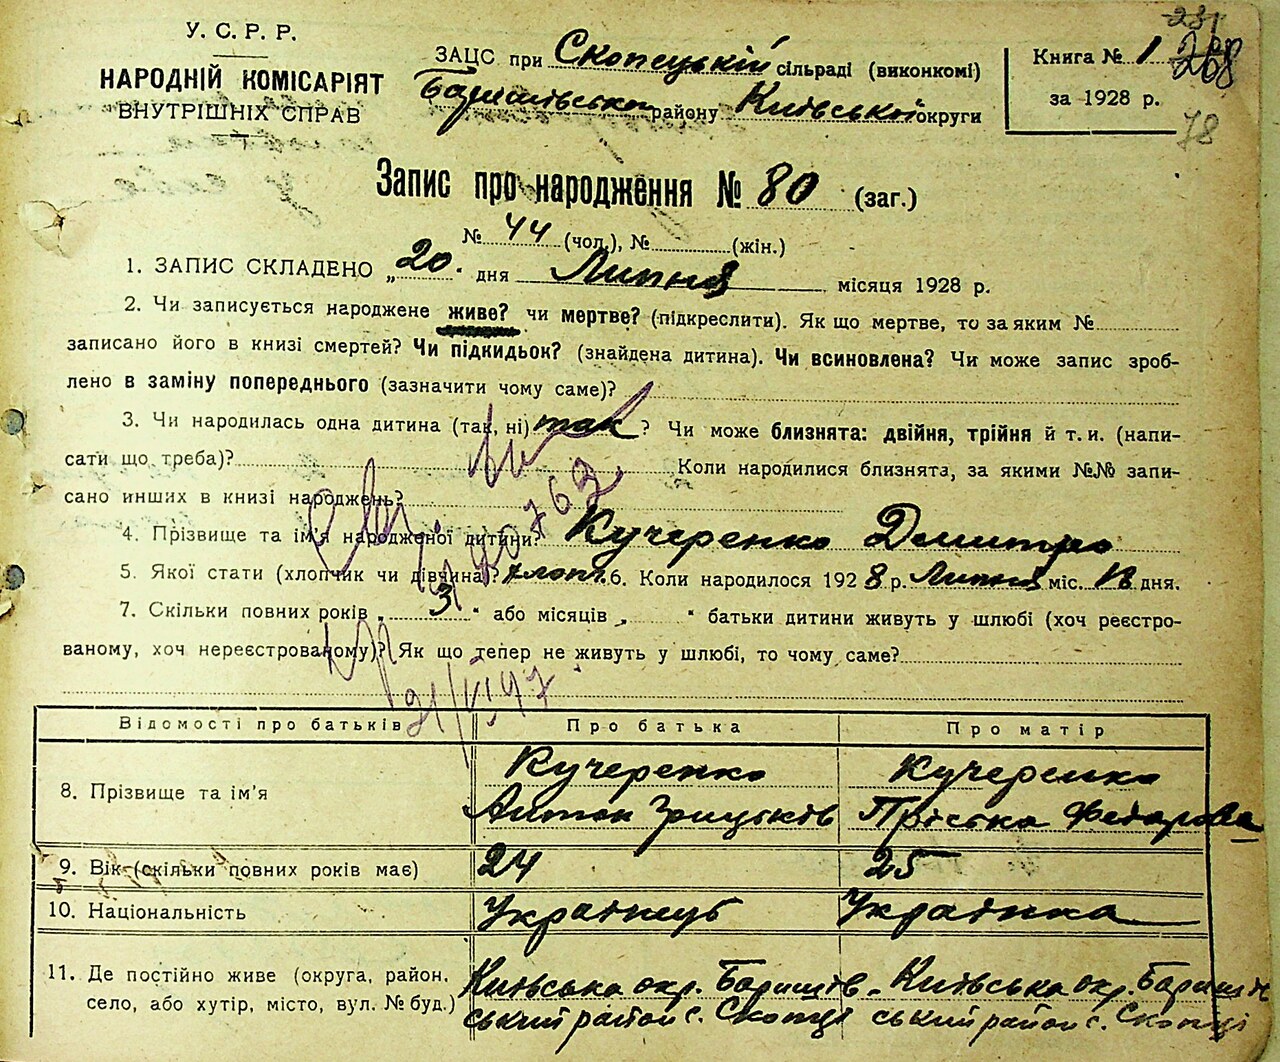 У.С.Р.Р.
НАРОДНІЙ КОМІСАРІЯТ
ВНУТРІШНІХ СПРАВ
ЗАЦС при Скопецькій сільраді (виконкомі)
Баришівського району Київської округи
Книга № 1
за 1928 р.
231
268
78
Запис про народження № 80 (заг.)
№ 44 (чол.), № (жін.)
1. ЗАПИС СКЛАДЕНО „20" дня Липня місяця 1928 р.
2. Чи записується народжене живе? чи мертве? (підкреслити). Як що мертве, то за яким №
записано його в книзі смертей? Чи підкидьок? (знайдена дитина). Чи всиновлена? Чи може запис зроб-
лено в заміну попереднього (зазначити чому саме)?
3. Чи народилась одна дитина (так, ні) так? Чи може близнята: двійня, трійня й т. и. (напи-
сати що треба)? Коли народилися близнята, за якими №№ запи-
сано инших в книзі народжень?
4. Прізвище та ім'я народженої дитини? Кучеренко Дмитро
5. Якої стати (хлопчик чи дівчина)? хлопч. 6. Коли народилося 1928 р. Липня міс. дня.
7. Скільки повних років „3" або місяців „ " батьки дитини живуть у шлюбі (хоч реєстро-
ваному, хоч нереєстрованому)? Як що тепер не живуть у шлюбі, то чому саме?
Відомості про батьків Про батька Про матір
8. Прізвище та ім'я Кучеренко Антон Грицьків Кучеренко Пріська Федорова
9. Вік (скільки повних років має) 24 25
10. Національність Українець Українка
11. Де постійно живе (округа, район, Київська окр. Баришів- Київська окр. Баришів
село, або хутір, місто, вул. № буд.) ський район с. Скопці ський район с. Скопці